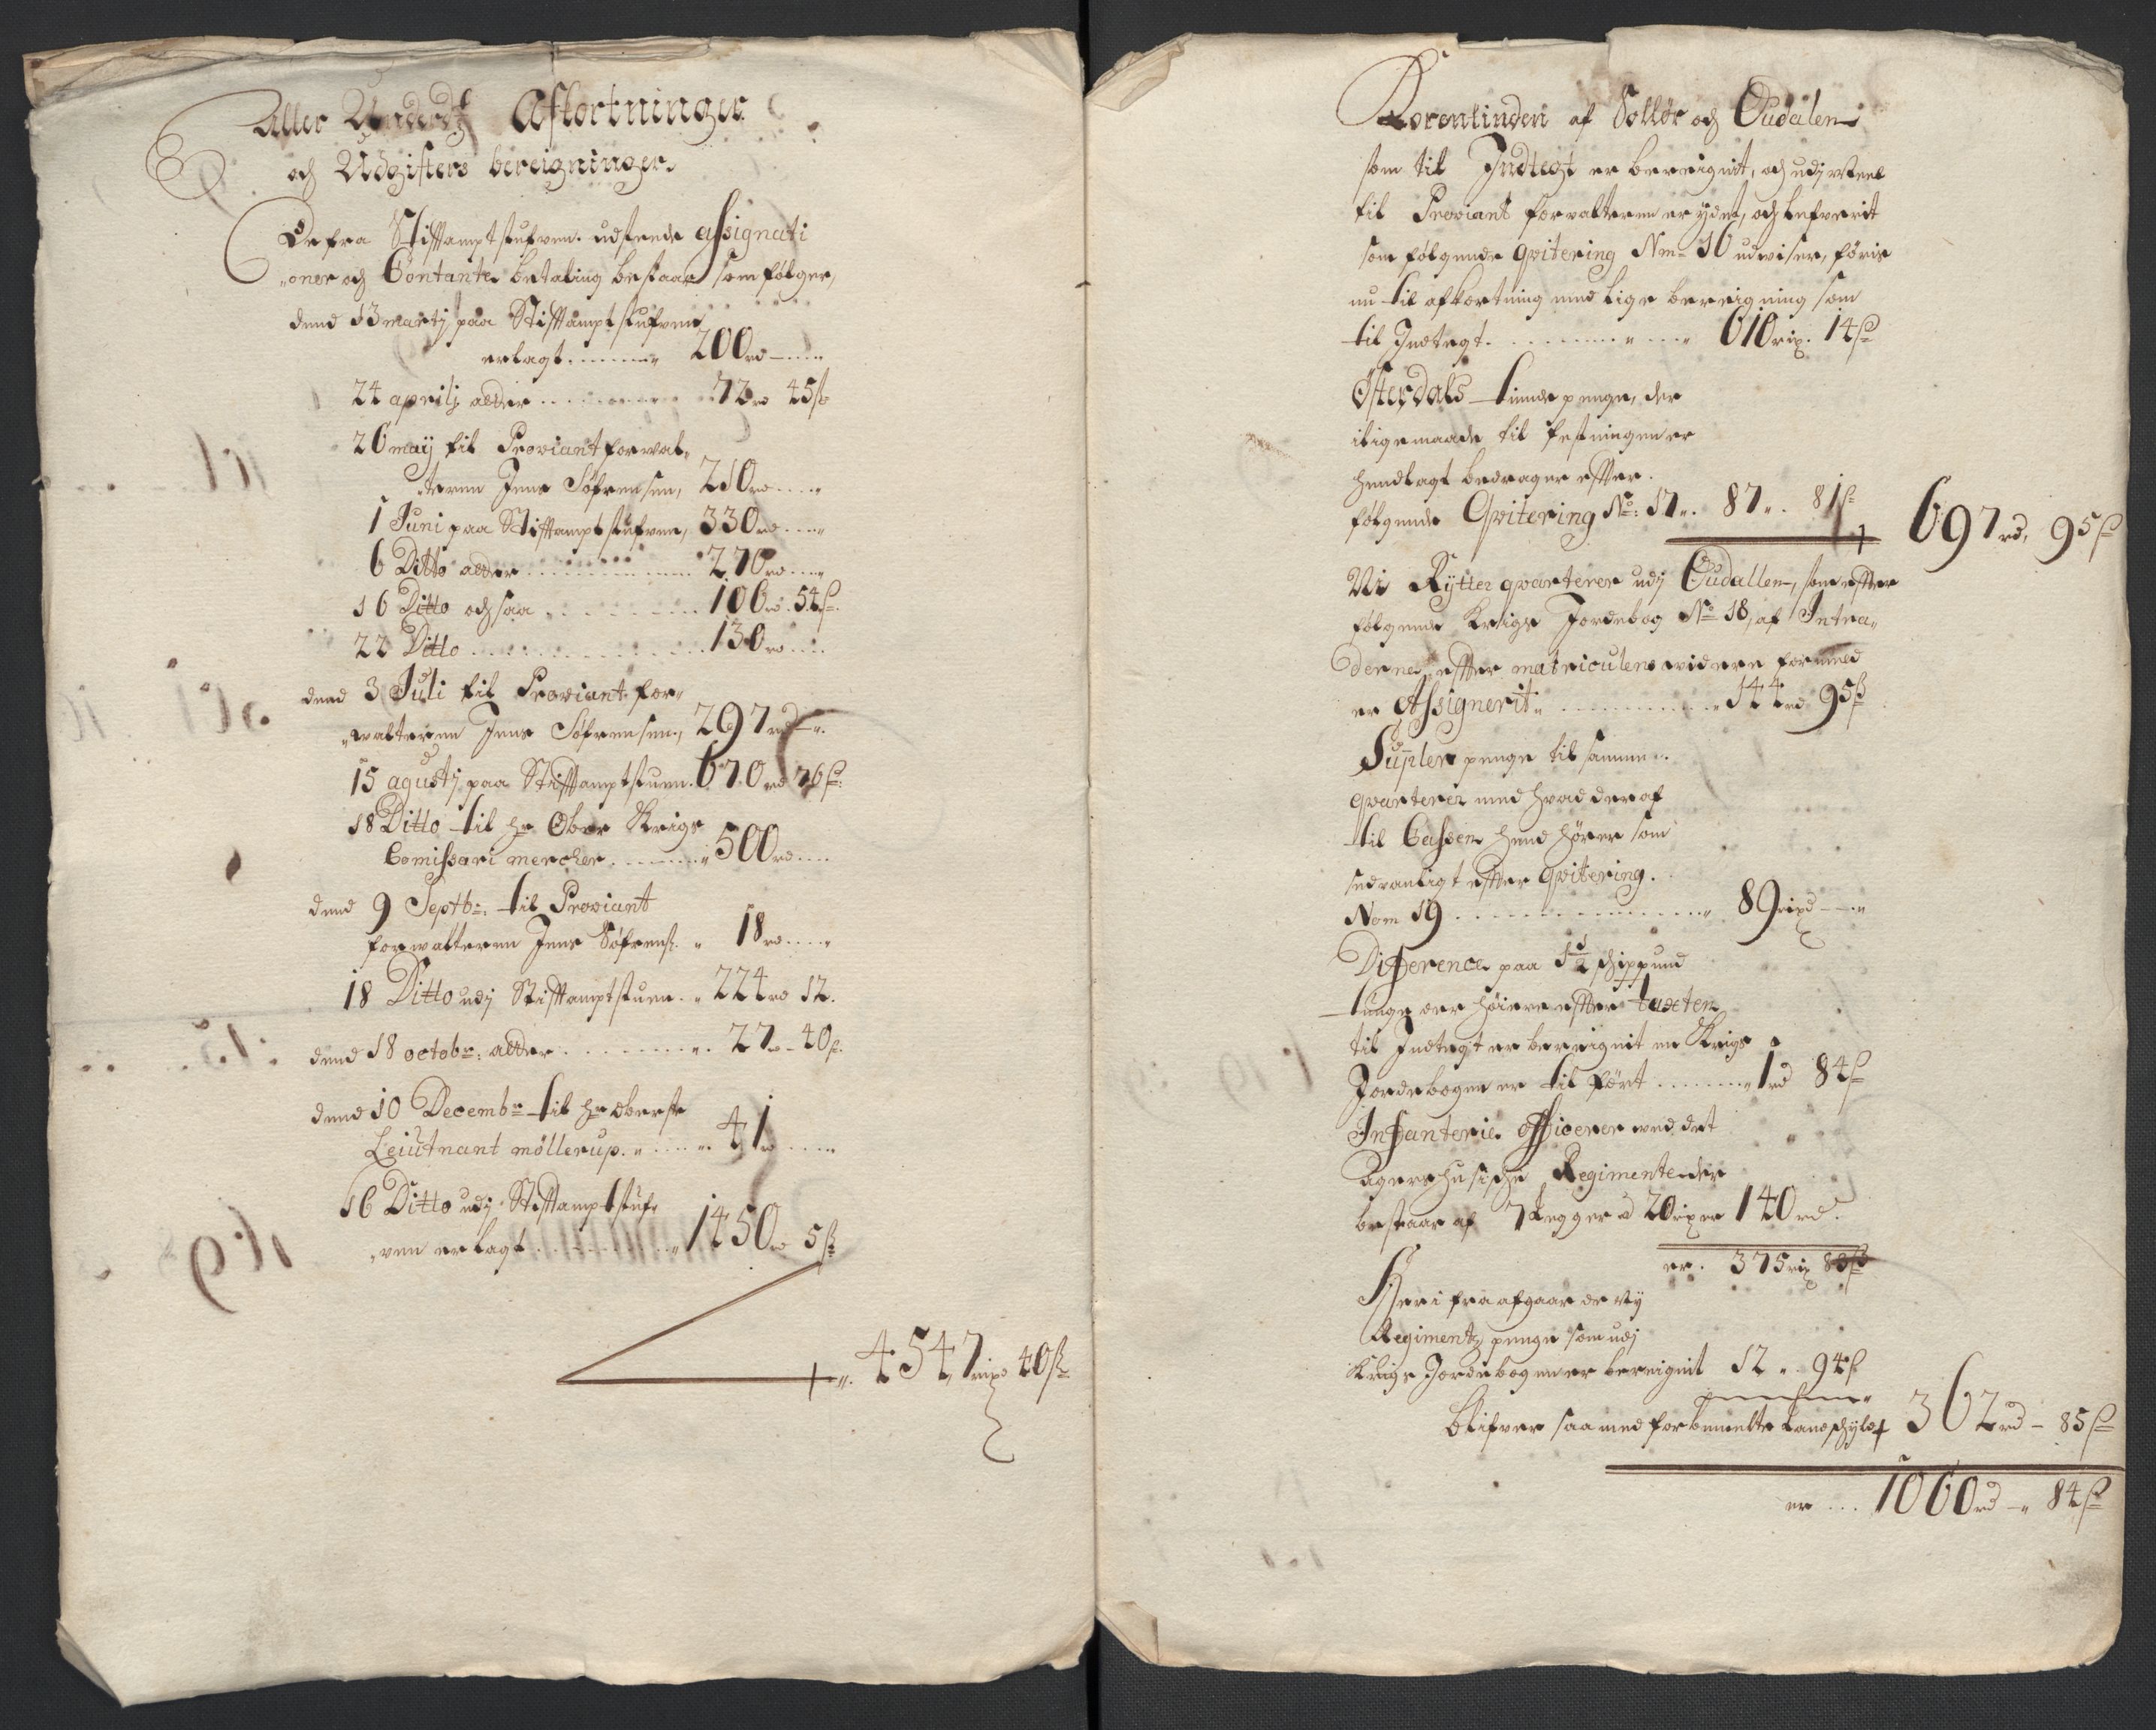 Aller Underd: Afkortninger
och Udgifters bereigninger.
De fra Stifftampt stufven udstede assignati
oner och Contante betaling bestaar som følger,
dend 13 martij paa Stifftampt stufven
erlagt 200 rd
24 aprilj atter 72 rd 45 ß
26 maij til Proviant forval-
teren Jens Søfrensen, 210 rd
1 Juni paa Stifftampt stufven, 330 rd
6 Ditto atter 270 rd
16 Ditto och saa 106 rd 54 ß
22 Ditto 130 rd
dend 3 Juli til Proviant for-
valteren Jens Søfrensen, 297 rd
15 agustj paa Stifftampt stuen. 670 rd 76 ß
18 Ditto til hr Ober Krigs
Comissari mercher 500 rd
dend 9 Septbr: til Proviant
forvalteren Jens Søfrens: 18 rd
18 Ditto udj Stifftampt stuen 224 rd 12.
dend 18 octobr: atter 27 - 40 ß
dend 10 Decembr til hr oberste
Leiutnant möllerup. 41 rd
16 Ditto udj Stifftampt stuf-
ven erlagt 1450 rd 5 ß
4547 rixd 40 ß
Korentinden af Solløer och Oudalen
som til Indtegt er bereignit, och udj
til Proviant forvalteren er ydet, och lefverit
som følgende qvitering Nm 16 udviser, føris
nu til afkortning med lige bereigning som
til Indtegt 610 rix. 14 ß
Østerdals tiende penge, der
i lige maade til festningen er
henlagt bedrager effter
følgende Qvitering No: 17 87 81 ß
697 rd, 95 ß
Ni Rytter qvarterer udj Oudallen, som effter
følgende Krigs Jordebog No 18, af Intra-
derne effter matriculens videre formeld
er Assignerit 144 rd 95 ß
Supler penge til samme
qvarterer med hvad der af
til Cassen hend hører som
sedvanligt effter qvitering.
Nom 19 89 rixd
Diference paa 1½ schippund
tunge der høiere effter taxten
til Indtegt er bereignit en Krigs
Jordebogen er til ført 1 rd 84 ß
Infanterie officerer ved det
agershusische Regimente der
bestaar af 7 Legger a 20 rix er 140 rd.
er. 375 rix 83 ß
Heri fra afgaar de Ny
Regimentz penge som udj
Krigs Jordebogen er bereignit 12 94 ß
Blifver saa med forbemelte Landschyld 362 rd - 85 ß
er 1060 rd - 84 ß